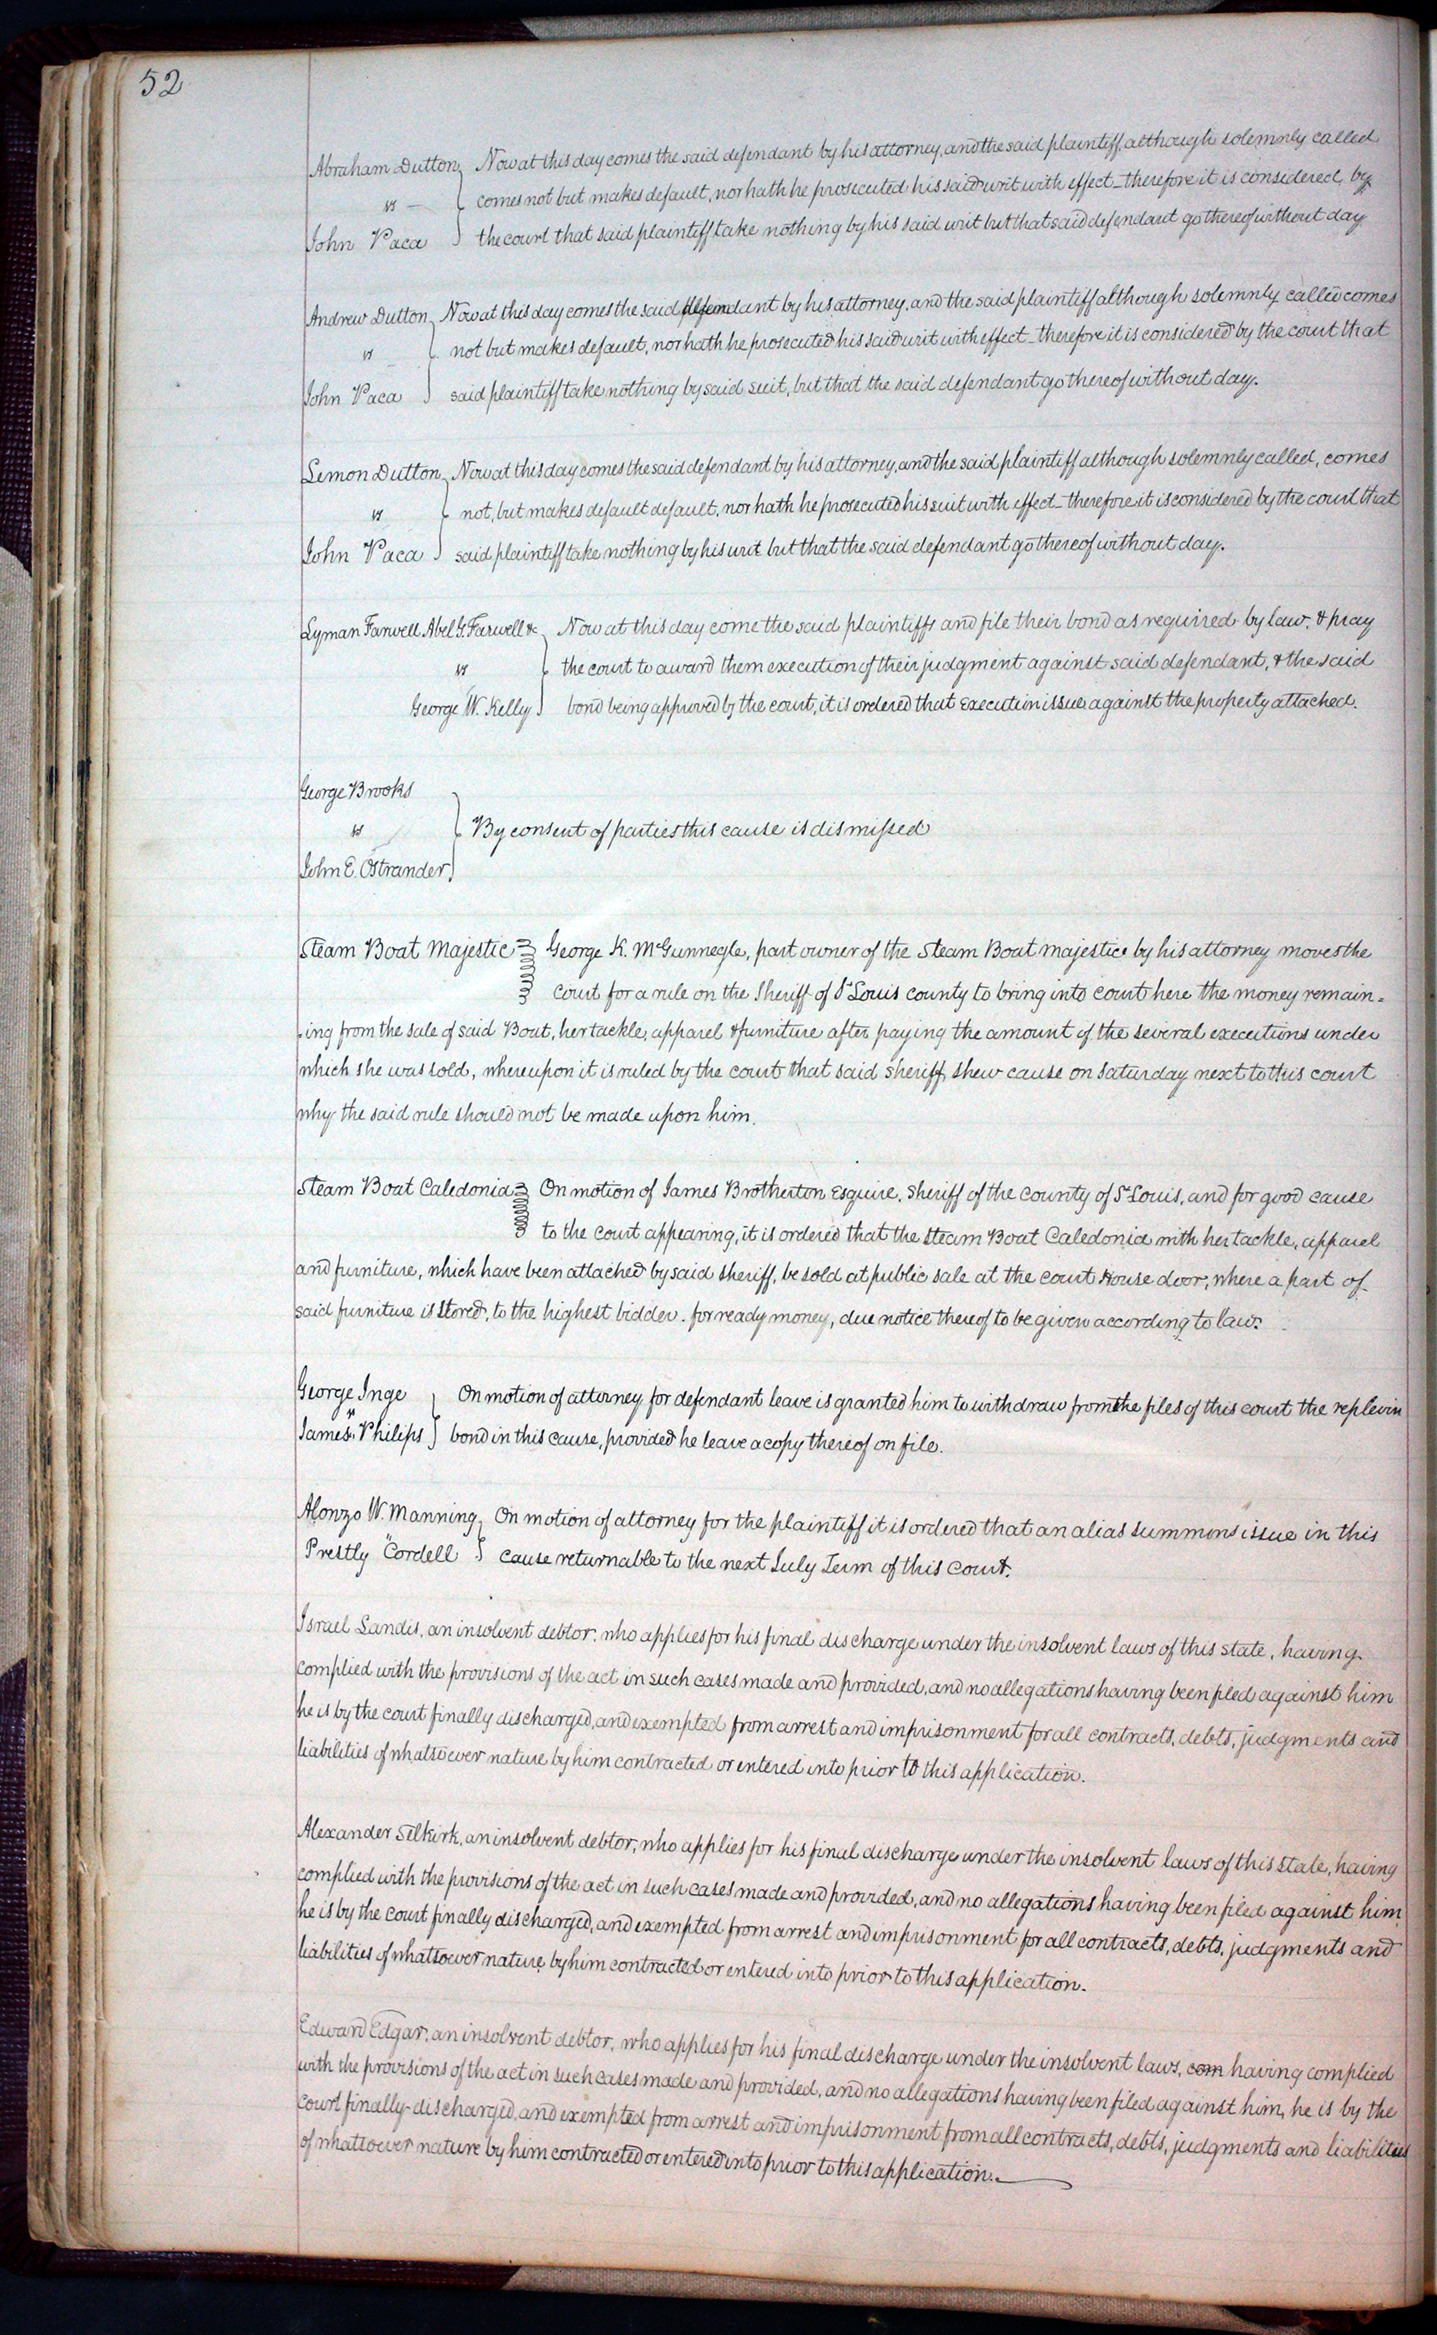 52
Abraham Dutton } Now at this day comes the said defendant by his attorney, and the said plaintiff although solemnly called
vs } comes not but makes default, nor hath he prosecuted his said writ with effect – therefore it is considered by
John Vaca } the court that said plaintiff take nothing by his said writ but that said defendant go thereof without day
Andrew Dutton } Now at this day comes the said defendant by his attorney, and the said plaintiff although solemnly called comes
vs } not but makes default, nor hath he prosecuted his said writ with effect – therefore it is considered by the court that
John Vaca } said plaintiff take nothing by said suit, but that the said defendant go thereof without day.
Lemon Dutton } Now at this day comes the said defendant by his attorney, and the said plaintiff although solemnly called, comes
vs } not, but makes default default, nor hath he prosecuted his suit with effect – therefore it is considered by the court that
John Vaca } said plaintiff take nothing by his writ but that the said defendant go thereof without day.
Lyman Farwell Abel G. Farwell &c } Now at this day come the said plaintiffs and file their bond as required by law, & pray
vs } the court to award them execution of their judgment against said defendant, & the said
George W. Kelly } bond being approved by the court, it is ordered that execution issue against the property attached.
George Brooks
vs } By consent of parties this cause is dismissed
John E. Ostrander
Steam Boat Majestic } George K. McGunnegle, part owner of the Steam Boat Majestic by his attorney moves the
court for a rule on the Sheriff of St Louis county to bring into court here the money remain=
=ing from the sale of said Boat, her tackle, apparel & furniture after paying the amount of the several executions under
which she was sold, whereupon it is ruled by the court that said sheriff shew cause on Saturday next to this court
why the said rule should not be made upon him.
Steam Boat Caledonia } On motion of James Brotherton Esquire, Sheriff of the county of St Louis, and for good cause
to the court appearing, it is ordered that the Steam Boat Caledonia with her tackle, apparel
and furniture, which have been attached by said sheriff, be sold at public sale at the court House door, where a part of
said furniture is stored, to the highest bidder for ready money, due notice thereof to be given according to law.
George Inge } On motion of attorney for defendant leave is granted him to withdraw from the files of this court the replevin
vs
James Philips } bond in this cause, provided he leave a copy thereof on file.
Alonzo W. Manning } On motion of attorney for the plaintiff it is ordered that an alias summons issue in this
Prestly " Cordell } cause returnable to the next July Term of this court.
Israel Landis, an insolvent debtor, who applies for his final discharge under the insolvent laws of this state, having
complied with the provisions of the act in such cases made and provided, and no allegations having been filed against him
he is by the court finally discharged, and exempted from arrest and imprisonment for all contracts, debts, judgments and
liabilities of whatsoever nature by him contracted or entered into prior to this application.
Alexander Selkirk, an insolvent debtor, who applies for his final discharge under the insolvent laws of this state, having
complied with the provisions of the act in such cases made and provided, and no allegations having been filed against him
he is by the court finally discharged, and exempted from arrest and imprisonment for all contracts, debts, judgments and
liabilities of whatsoever nature by him contracted or entered into prior to this application.
Edward Edgar, an insolvent debtor, who applies for his final discharge under the insolvent laws, com having complied
with the provisions of the act in such cases made and provided, and no allegations having been filed against him, he is by the
court finally discharged, and exempted from arrest and imprisonment from all contracts, debts, judgments and liabilities
of whatsoever nature by him contracted or entered into prior to this application.